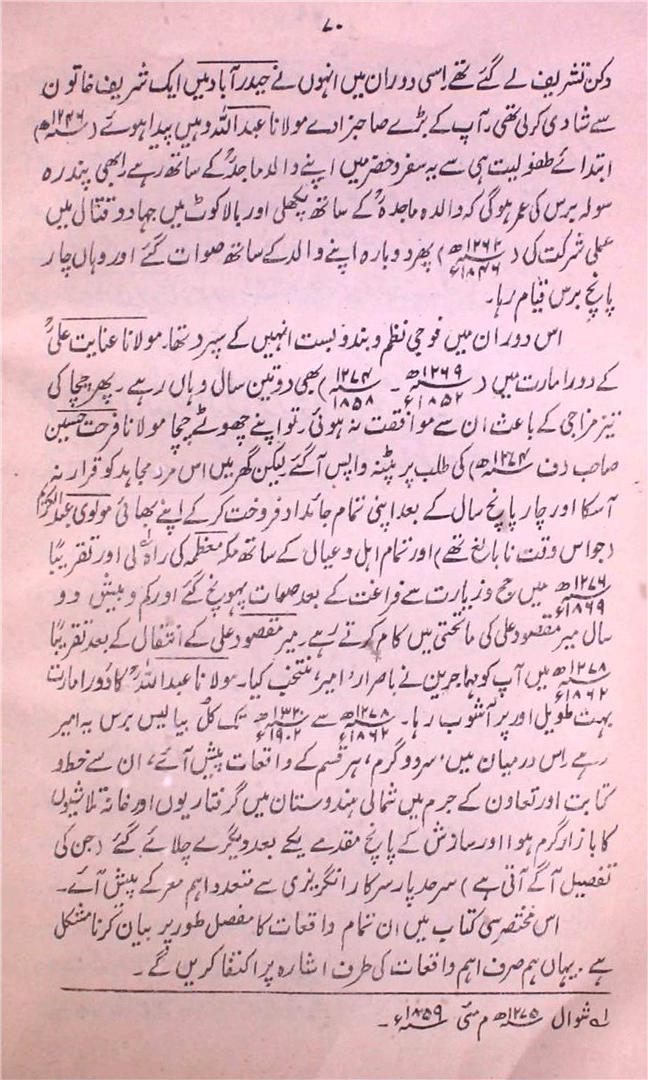 ۷۰
دکن تشریف لے گئے تھے اِسی دوران میں انہوں نے حیدرآباد میں ایک شریف خاتون
سے شادی کرلی تھی، آپ کے بڑے صاحبزادے مولانا عبداللہ وہیں پیدا ہوئے (۱۲۴۶ھ)
ابتدائے طفولیت ہی سے یہ سفر و حضر میں اپنے والد ماجدؒ کے ساتھ رہے ابھی پندرہ
سولہ برس کی عمر ہوگی کہ والد ماجدؒ کے ساتھ پکھلی اور بالاکوٹ میں جہاد و قتال میں
عملی شرکت کی (۱۲۶۲ھ ۱۸۴۶ء) پھر دوبارہ اپنے والد کے ساتھ صوات گئے اور وہاں چار
پانچ برس قیام رہا۔
اس دوران میں فوجی نظم و بندوبست انہیں کے سپرد تھا۔ مولانا عنایت علیؒ
کے دور امارت میں (۱۲۶۹ھ ۱۸۵۲ء - ۱۲۷۴ ۱۸۵۸) بھی دو تین سال وہاں رہے۔ پھر چچا کی
تیز مزاجی کے باعث ان سے موافقت نہ ہوئی۔ تو اپنے چھوٹے چچا مولانا فرحت حسین
صاحب (ف ۱۲۷۴ھ) کی طلب پر پٹنہ واپس آگئے لیکن گھر میں اس مرد مجاہد کو قرار نہ
آسکا اور چار پانچ سال کے بعد اپنی تمام جائداد فروخت کرکے اپنے بھائی مولوی عبدالکریم
(جو اس وقت نابالغ تھے) اور تمام اہل و عیال کے ساتھ مکہ معظمہ کی راہ لی اور تقریباً
۱۲۷۶ھ ۱۸۶۹ء میں حج و زیارت سے فراغت کے بعد صوات پہونچ گئے اور کم و بیش دو
سال میر مقصود علی کی ماتحتی میں کام کرتے رہے۔ میر مقصود علی کے انتقال کے بعد تقریباً
۱۲۷۸ھ ۱۸۶۲ء میں آپ کو مہاجرین نے باصرار 'امیر' منتخب کیا۔ مولانا عبداللہؒ کا دور امارت
بہت طویل اور پر آشوب رہا۔ ۱۲۷۸ھ ۱۸۶۲ء سے ۱۳۲۰ھ ۱۹۰۲ء تک کل بیالیس برس یہ امیر
رہے اِس درمیان میں 'سرد و گرم' ہر قسم کے واقعات پیش آئے، ان سے خط و
کتابت اور تعاون کے جرم میں شمالی ہندوستان میں گرفتاریوں اور خانہ تلاشیوں
کا بازار گرم ہوا اور سازش کے پانچ مقدمے یکے بعد دیگرے چلائے گئے (جن کی
تفصیل آگے آتی ہے) سرحد پار سرکار انگریزی سے متعدد اہم معرکے پیش آئے۔
اس مختصر سی کتاب میں ان تمام واقعات کا مفصل طور پر بیان کرنا مشکل
ہے۔ یہاں ہم صرف اہم واقعات کی طرف اشارہ پر اکتفا کریں گے۔
لہ شوال ۱۲۷۵ھ م مئی ۱۸۵۹ء۔